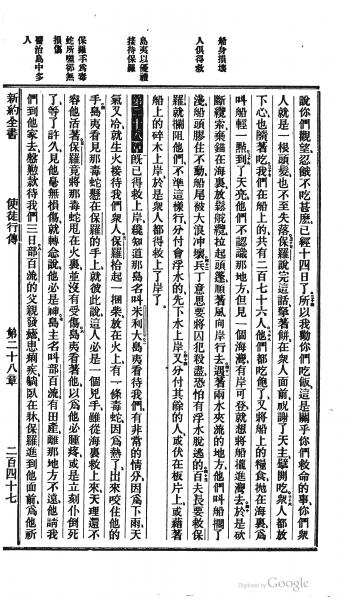 船身損壞
人俱得救
島夷以優禮
接待保羅
保羅手為毒
蛇所噬卻無
損傷
醫治島中多
人
說你們觀望忍餓不吃甚麼已經十四日了所以我勸你們吃飯這是關乎你們救命的事你們衆
人就是一根頭髮也不至失落保羅說完這話擎著餅在衆人面前祝謝了天主擘開吃衆人都放
下心也隨著吃我們在船上的共有二百七十六人他們都吃飽了又將船上的糧食拋在海裏為
叫船輕一點到了天亮他們不認識那地方但見一個海灣有岸可登就想將船攏進灣去於是砍
斷纜索棄錨在海裏放鬆舵纜拉起頭篷順著風向岸行去遇著兩水夾流的地方他們叫船擱了
淺船頭膠住不動船尾被大浪冲壞兵丁意思要將囚犯殺盡恐怕有浮水脫逃的百夫長要救保
羅就攔阻他們不準這樣行分付會浮水的先下水上岸又分付其餘的人或伏在板片上或藉著
船上的碎木上岸於是衆人都得救上了岸了
第二十八章既已得救上岸纔知道那島名叫米利大島夷看待我們有非常的情分因為下雨天
氣又冷就生火接待我們衆人保羅拾起一捆柴放在火上有一條毒蛇因為熱了出來咬住他的
手島夷看見那毒蛇懸在保羅的手上就彼此說這人必是一個兇手雖從海裏救上來天理還不
容他活著保羅竟將那毒蛇甩在火裏並沒有受傷島夷看著他以為他必腫疼或是立刻仆倒死
了等了許久見他毫無損傷就轉念說他必是神島主名叫部百流有田產離那地方不遠他請我
們到他家去慇懃款待我們三日部百流的父親發瘧患痢疾躺臥在牀保羅進到他面前為他祈
新約全書 使徒行傳 第二十八章 二百四十七
Digitized by Google